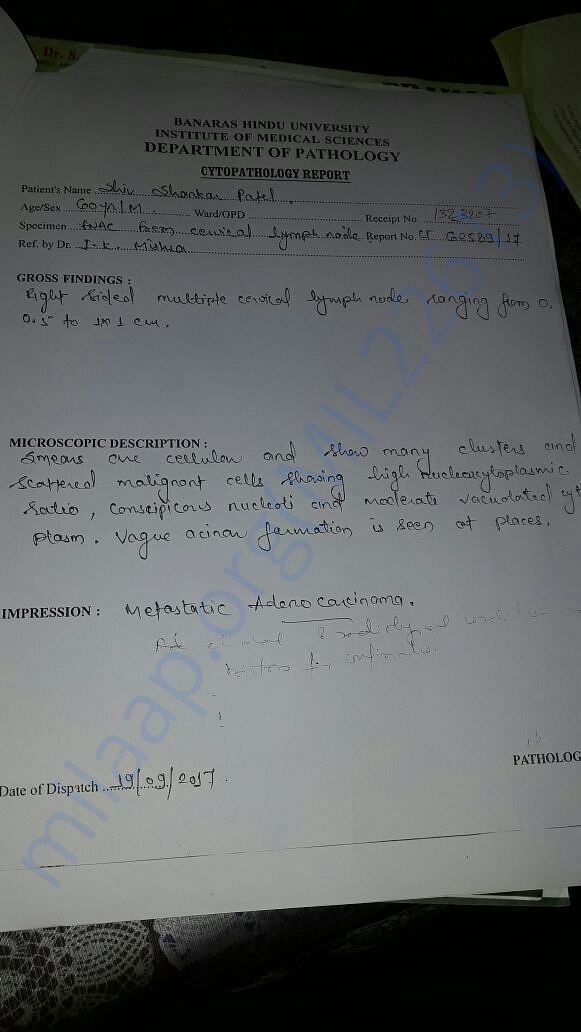 Dr. S.
BANARAS HINDU UNIVERSITY
INSTITUTE OF MEDICAL SCIENCES
DEPARTMENT OF PATHOLOGY
CYTOPATHOLOGY REPORT
Patient's Name Shiv Shankar Patel
Age/Sex 60yr/M Ward/OPD Receipt No. 1323207
Specimen FNAC from cervical lymph node Report No. G2589/17
Ref. by Dr. J.K. Mishra
GROSS FINDINGS :
Right sided multiple cervical lymph node ranging from 0.
0.5 to 1x1 cm.
MICROSCOPIC DESCRIPTION :
Smears are cellular and show many clusters and
scattered malignant cells showing high nucleocytoplasmic
ratio, conspicous nucleoli and moderate vacuolated cyt
plasm. Vague acinar formation is seen at places.
IMPRESSION : Metastatic Adenocarcinoma.
Date of Dispatch 19/09/2017.
PATHOLOG
milaap.org(MIL226131)